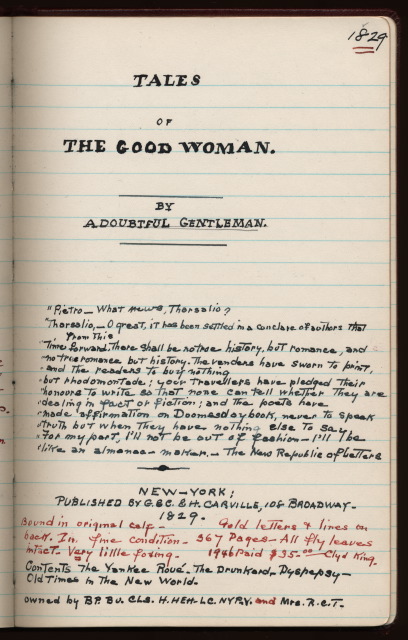 1829
TALES
OF
THE GOOD WOMAN.
BY
A DOUBTFUL GENTLEMAN.
"Pietro — What news, Thorsalio?
"Thorsalio, — O great, it has been settled in a conclave of authors that
from this
"Time forward. There shall be no true history, but romance, and
"no true romance but history. The venders have sworn to print,
"and the readers to buy nothing
"but rhodomontade; your Travellers have pledged their
"honours to write so that none can tell whether they are
"dealing in fact or fiction; and the poets have
"made affirmation on Doomesday book, never to speak
"truth but when they have nothing else to say
"For my part, I'll not be out of fashion — I'll be
"like an almanac-maker. — The New Republic of Letters
NEW-YORK;
PUBLISHED BY G. & C. & H. CARVILLE, 108 BROADWAY—
1829.
Bound in original calf — Gold letters & lines on
back. In fine condition — 367 Pages — All fly leaves
intact — Very little foxing. 1946 Paid $35.00 — Clyd King.
Contents The Yankee Roué. The Drunkard. Dyspepsy —
Old Times in The New World.
Owned by BP. BU. CLS. H. HEH. LC. NYP. Y. and Mrs. R.C.T.